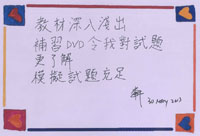 教材深入淺出
補習DVD令我對試題
更了解
模擬試題充足
軒
30 May 2013